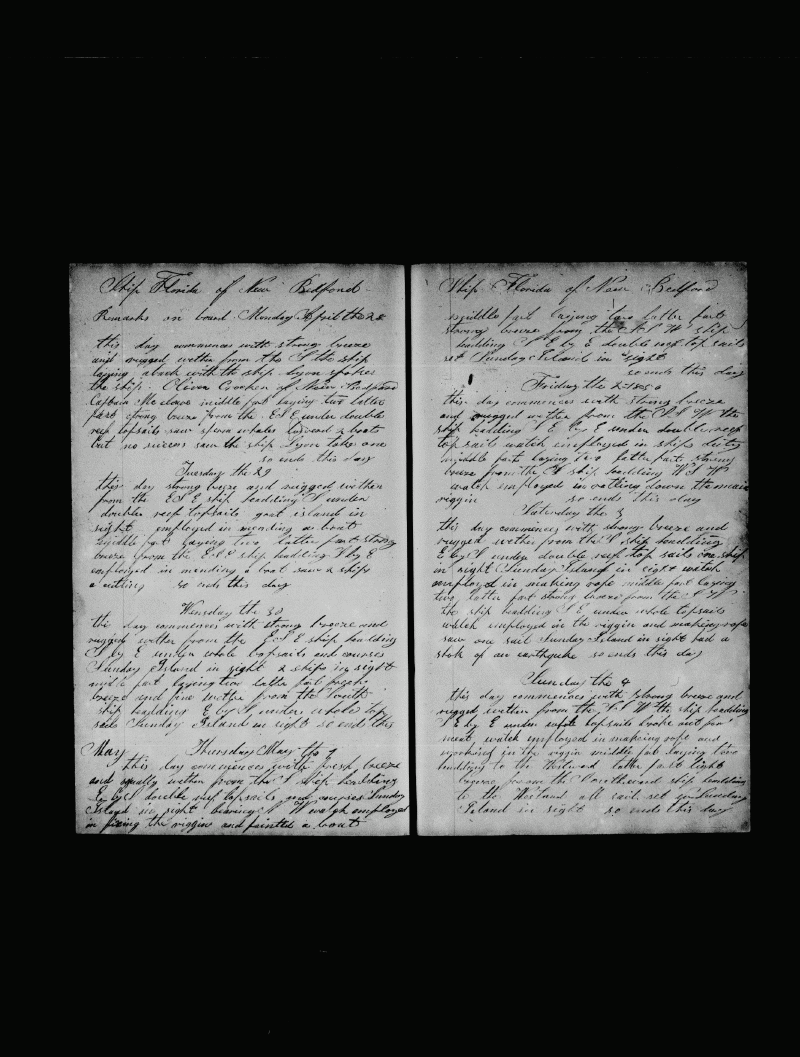 Ship Florida of New Bedford
Remarks on board Monday April the 28
this day commences with strong breeze
and rugged wether from the S the ship
laying aback with the ship Lyon spoke
the ship Oliver Crocker of New Bedford
Captain middle part laying two latter
part strong breeze from the ESE under double
reef topsails saw sperm whales lowered 2 boats
but no success saw the ship Lyon take one
so ends this day
Tuesday the 29
this day strong breeze and rugged wether
from the ESE ship headding S under
double reef topsails goat island in
sight employed in mending a boat
middle part laying two latter part strong
breeze from the ESE ship headding S by E
employed in mending a boat saw 2 ships
a cutting so ends this day
Wensday the 30
the day commences with strong breeze and
rugged wether from the ESE ship headding
S by E under whole topsails and courses
Sunday Island in sight 2 ships in sight
midle part laying two latter part fresh
breeze and fine wether from the South
ship headding E by S under whole top
sails Sunday Island in sight so ends this
May Thursday May the 1
this day commences with fresh breeze
and squally wether from the S ship headding
E by S double reef topsails and courses Sunday
Island in sight bearing S W watch employed
in fixing the riggin and painted a boat
Ship Florida of New Bedford
middle part laying two latter part
strong breeze from the S S W ship
headding S E by E double reef top sails
set Sunday Island in sight
so ends this day
Friday the 2 1850
this day commences with strong breeze
and rugged wether from the S S W the
ship headding S E by E under double reef
top sails watch employed in ships duty
middle part laying two latter part strong
breeze from the S ship headding W S W
watch employed in ratling down the main
riggin so ends this day
Saturday the 3
this day commences with strong breeze and
rugged wether from the S ship headding
E by S under double reef top sails one ship
in sight Sunday Island in sight watch
employed in making rope middle part laying
two latter part strong breeze from the S W
the ship headding S E under whole topsails
watch employed in the riggin and making rope
saw one sail Sunday Island in sight had a
shok of an earthquke so ends this day
Sunday the 4
this day commences with strong breeze and
rugged wether from the S S W the ship headding
S E by E under topsails broke out for
meat watch employed in making rope and
working in the riggin middle part laying two
headding to the latter part light
breeze from the Southward ship headding
to the Westward all sail set Sunday
Island in sight so ends this day